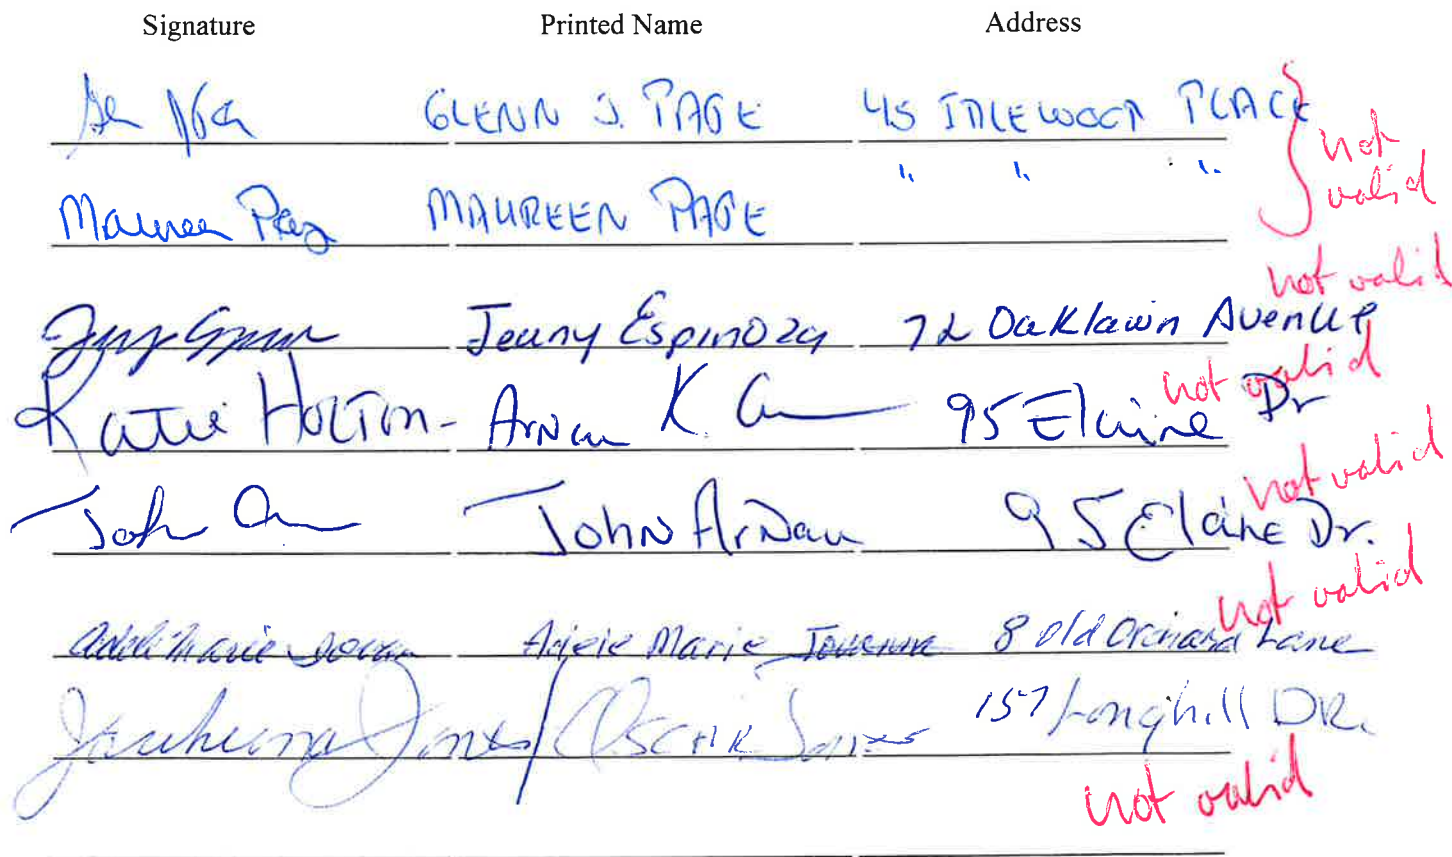 Signature Printed Name Address
GLENN J. PAGE 45 IDLEWOOD PLACE
not valid
Maureen Page MAUREEN PAGE " " "
not valid
Jenny Espinoza 72 Oaklawn Avenue
not valid
Katie HOLTON- Arnau K. 95 Elaine Dr
not valid
John John ArNau 95 Elaine Dr.
not valid
Adele Marie Adele Marie 8 Old Orchard Lane
Jones / OSCAR Jones 157 Longhill DR.
not valid